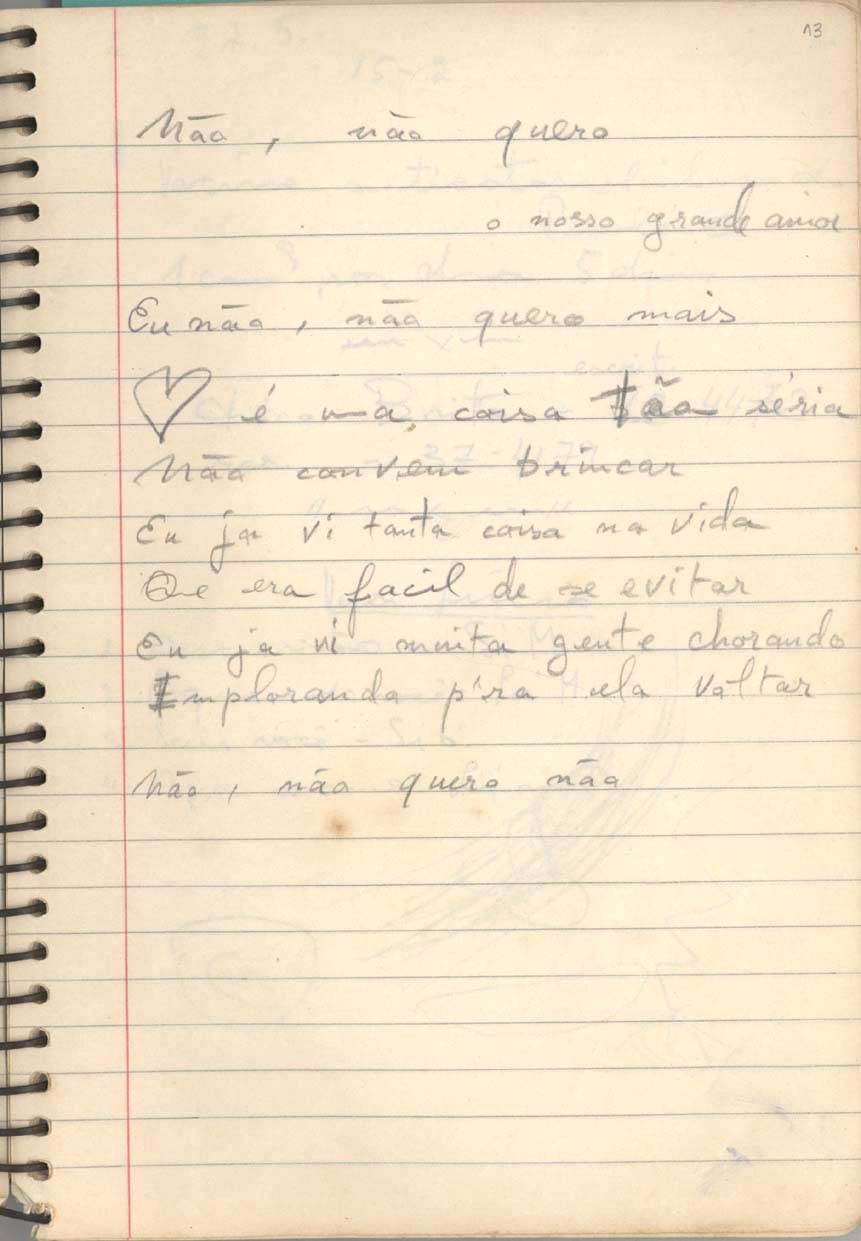 13
Não, não quero
o nosso grande amor
Eu não, não quero mais
♡ é uma coisa tão séria
Não convem brincar
Eu ja vi tanta coisa na vida
Que era facil de se evitar
Eu ja vi muita gente chorando
Imploranda p'ra ela voltar
Não, não quero não